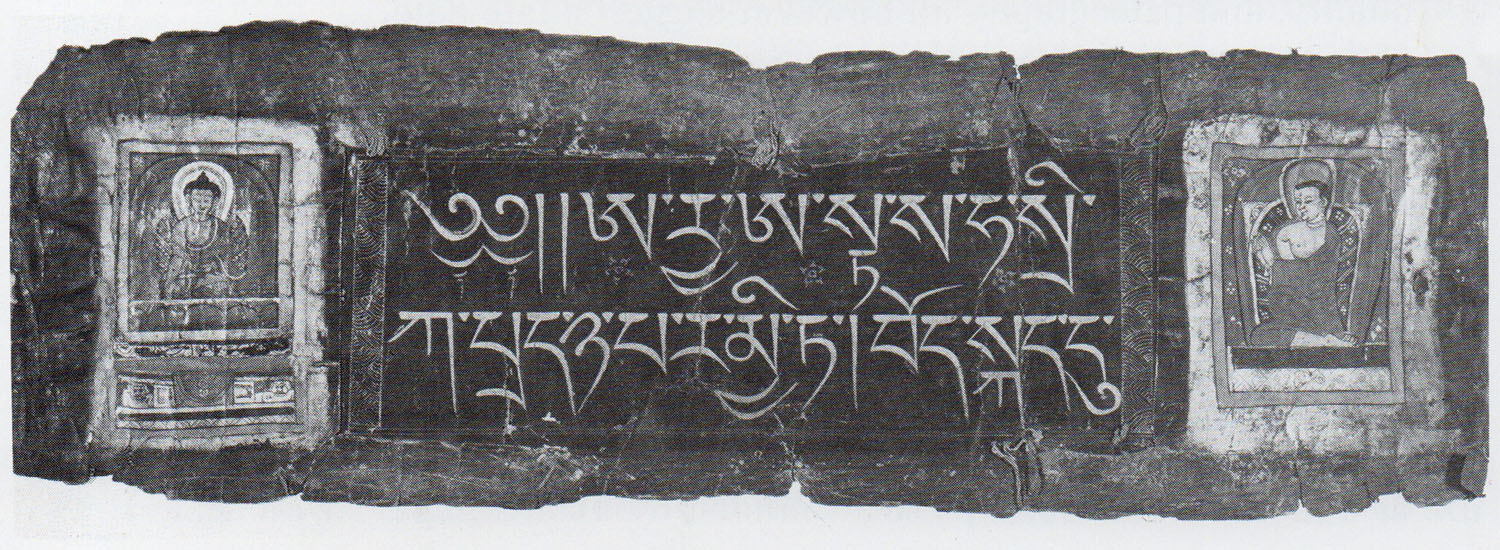 ༄༅།།ཨ་རྱ་ཨ་སྟ་ས་ཧ་སྲི་
ཀ་པྲད་ཉ་པ་ར་མྱི་ཏ། བོད་སྐད་དུ